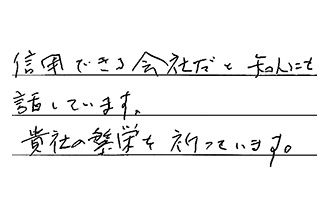 信用できる会社だと知人にも
話しています。
貴社の繁栄を祈っています。